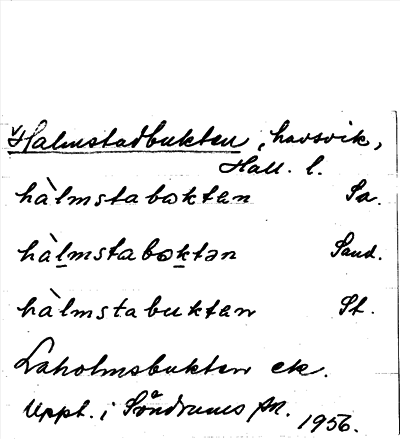 √Halmstadbukten, havsvik,
Hall. l.
hàlmstabɷktan Sa.
hàlmstabɷktən Sand.
hàlmstabuktan St.
Laholmsbukten ek.
Uppt. i Söndrums sn.
1956.